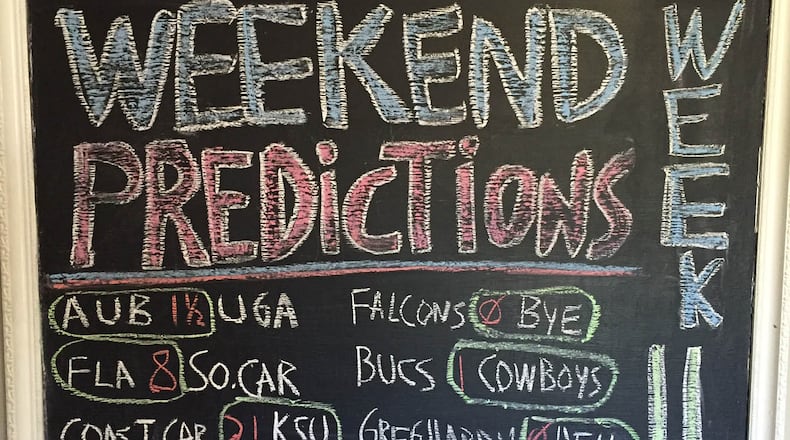 WEEKEND
PREDiCTiONS
AUB 1½ UGA
FLA 8 SO.CAR
COAST.CAR 21 KSU
FALCONS 0 BYE
BUCS 1 COWBOYS
GREG HARDY 0
WEEK
11